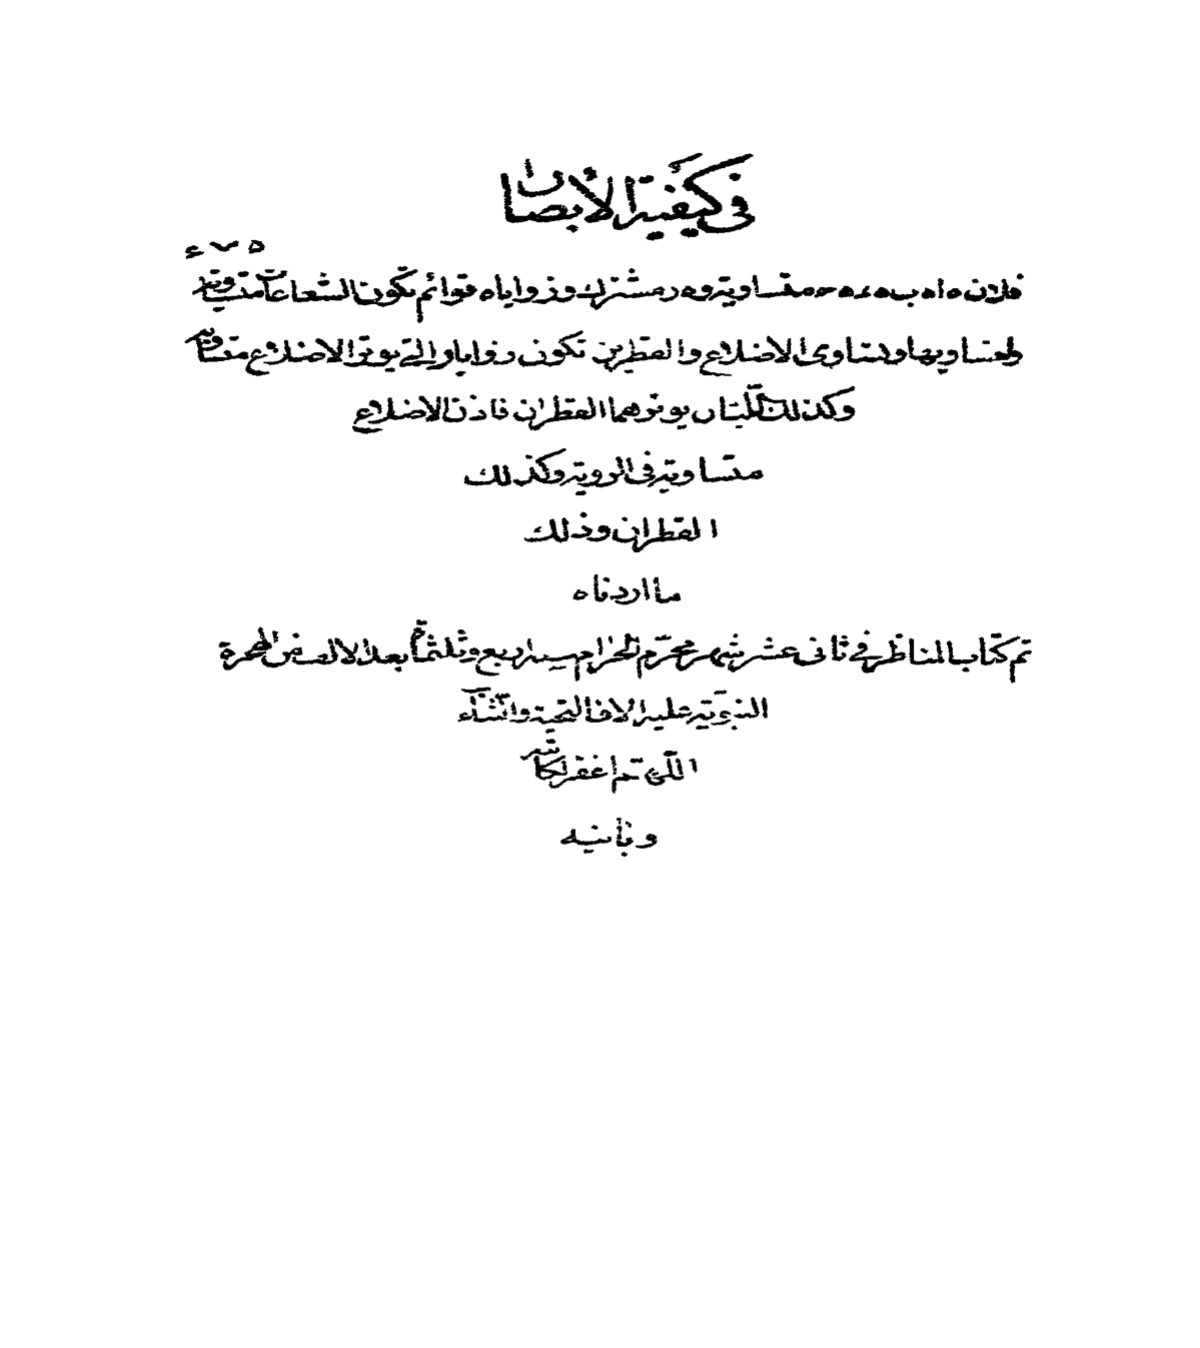 في كيفية الأبصار
ه ح ء
فلان ه ا ه ب ه ء ه ح متساوية وه ر مشترك وزوايا ه قوائم تكون الشعاعات متساوية
ولتساويها ولتساوى الاضلاع والقطرين تكون زوايا ر التي يوترها الاضلاع متساوية
وكذلك اللتان يوترهما القطران فاذن الاضلاع
متساوية في الروية وكذلك
القطران وذلك
ما اردناه
تم كتاب المناظر في ثانى عشر شهر محرّم الحرام سنه اربع وثلثمائة بعد الالف من الهجرة
النبويّة عليه الاف التحية والثناء
اللّهم اغفر لكاتبه
وبانيه